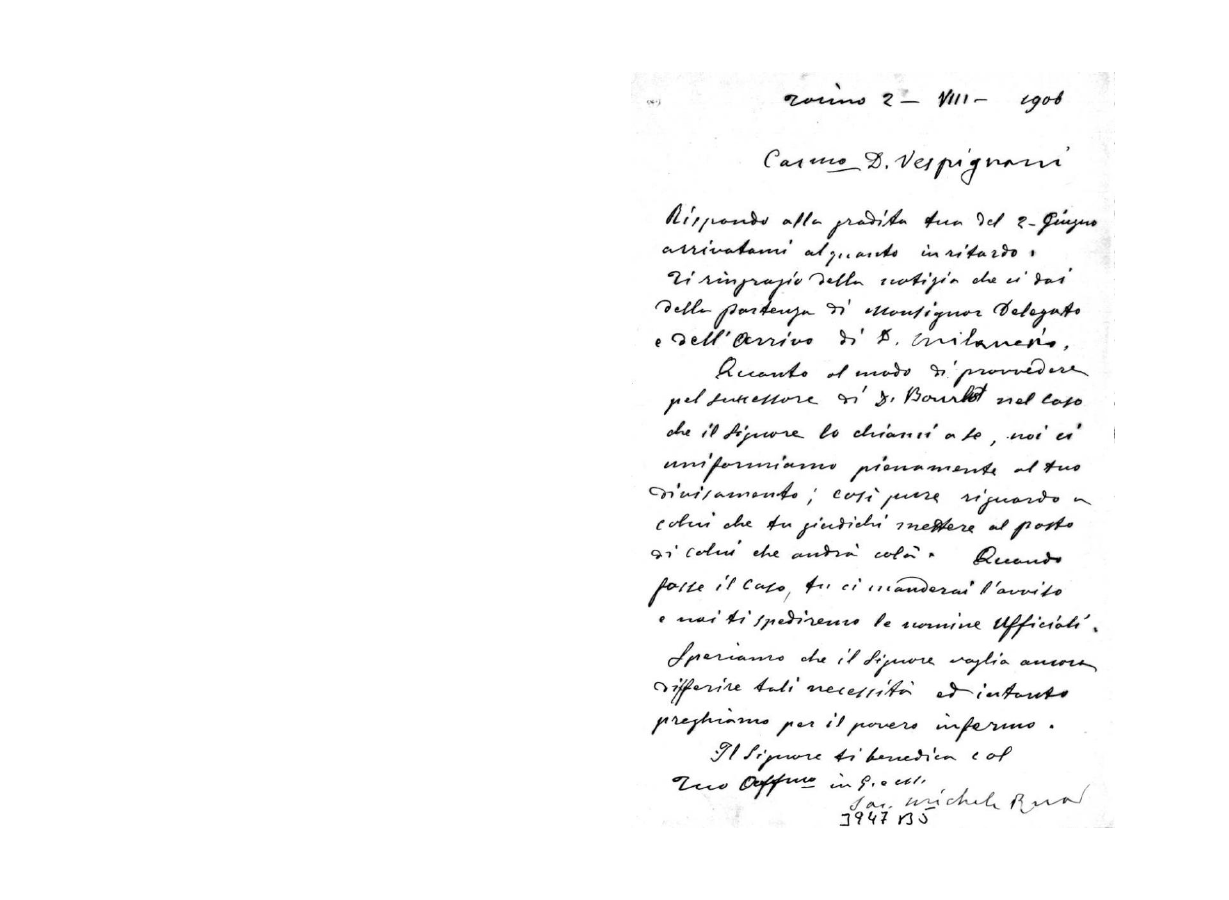 Torino 2 - VIII - 1906
Carmo D. Vespignani
Rispondo alla gradita tua del 2 - Giugno
arrivatami alquanto in ritardo.
Ti ringrazio della notizia che ci dai
della partenza di Monsignor Delegato
e dell'Arrivo di D. Milanesio.
Quanto al modo di provvedere
pel successore di D. Bourlot nel caso
che il Signore lo chiami a se, noi ci
uniformiamo pienamente al tuo
divisamento; così pure riguardo a
colui che tu giudichi mettere al posto
di colui che andrà colà. Quando
fosse il caso, tu ci manderai l'avviso
e noi ti spediremo le nomine Ufficiali.
Speriamo che il Signore voglia ancora
differire tali necessità ed intanto
preghiamo per il povero infermo.
Il Signore ti benedica e al
Tuo Affmo in G. e M.
Sac. Michele Rua
3947 B5